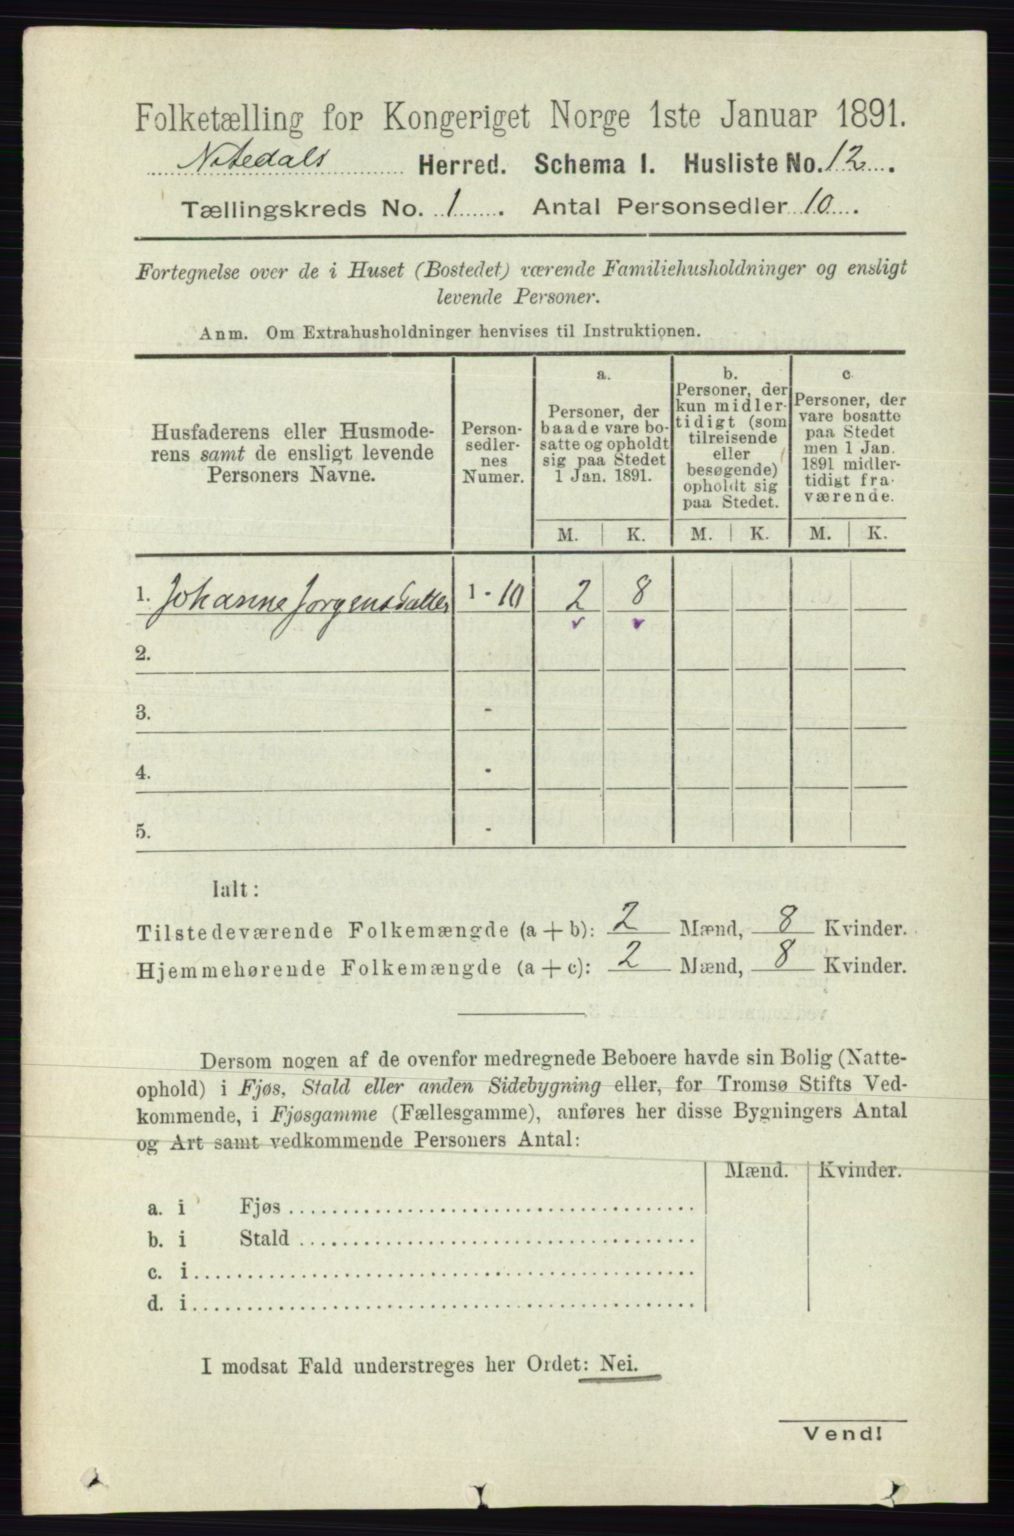 Folketælling for Kongeriget Norge 1ste Januar 1891.
Nitedals Herred. Schema I. Husliste No. 12.
Tællingskreds No. 1. Antal Personsedler 10.
Fortegnelse over de i Huset (Bostedet) værende Familiehusholdninger og ensligt
levende Personer.
Anm. Om Extrahusholdninger henvises til Instruktionen.
Husfaderens eller Husmode-
rens samt de ensligt levende
Personers Navne.
Person-
sedler-
nes
Numer.
a.
Personer, der
baade vare bo-
satte og opholdt
sig paa Stedet
1 Jan. 1891.
b.
Personer, der
kun midler-
tidigt (som
tilreisende
eller
besøgende)
opholdt sig
paa Stedet.
c.
Personer, der
vare bosatte
paa Stedet
men 1 Jan.
1891 midler-
tidigt fra-
værende.
M. K. M. K. M. K.
1. Johanne Jorgensdatter 1 - 10 2 8
2.
3. -
4. -
5. -
Ialt:
Tilstedeværende Folkemængde (a + b): 2 Mænd, 8 Kvinder.
Hjemmehørende Folkemængde (a + c): 2 Mænd, 8 Kvinder.
Dersom nogen af de ovenfor medregnede Beboere havde sin Bolig (Natte-
ophold) i Fjøs, Stald eller anden Sidebygning eller, for Tromsø Stifts Ved-
kommende, i Fjøsgamme (Fællesgamme), anføres her disse Bygningers Antal
og Art samt vedkommende Personers Antal:
Mænd. Kvinder.
a. i Fjøs
b. i Stald
c. i
d. i
I modsat Fald understreges her Ordet: Nei.
Vend!